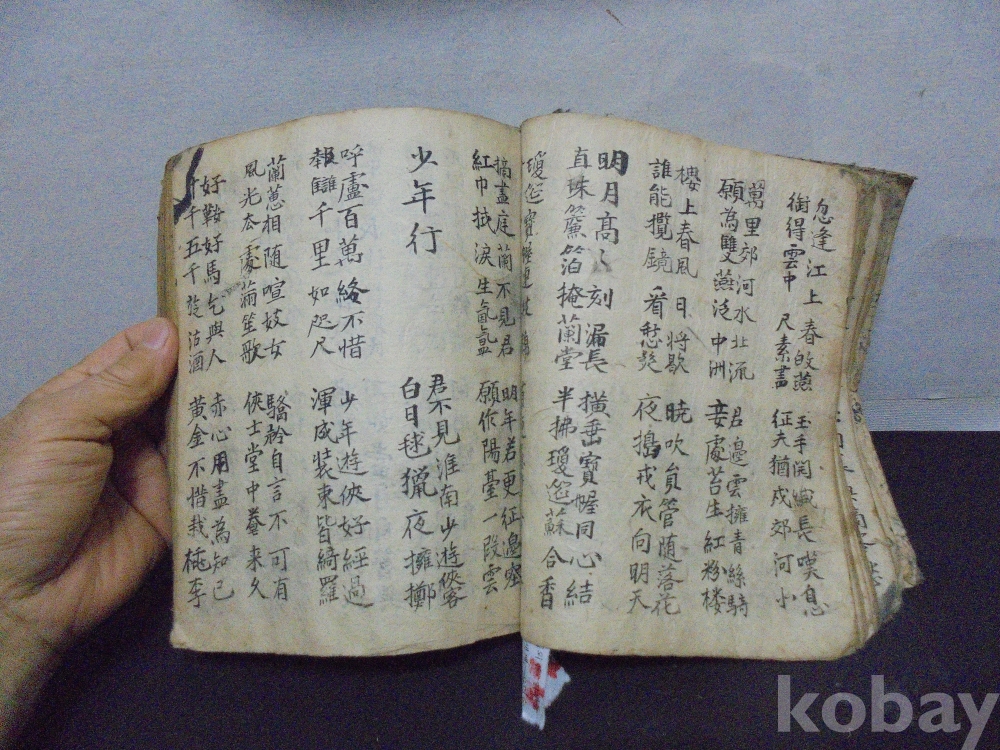 忽逢江上春皈燕
銜得雲中尺素書
玉手開緘長嘆息
征夫猶戍郊河小
萬里郊河水北流
願為雙燕泛中洲
君邊雲擁青絲騎
妾處苔生紅粉樓
樓上春風日將歇
誰能攬鏡看愁髮
曉吹員管随落花
夜搗戎衣向明天
明月高々刻漏長
直珠簾箔掩蘭堂
橫垂寶幄同心結
半拂瓊筵蘇合香
瓊筵寶幄連枝錦
摘盡庭蘭不見君
紅巾拭淚生氤氳
明年若更征邊塞
願作陽臺一段雲
少年行
君不見淮南少遊俠客
白日毬獵夜擁擲
呼盧百萬終不惜
報讎千里如咫尺
少年遊俠好經過
渾成裝束皆綺羅
蘭蕙相随喧妓女
風光去處滿笙歌
驕矜自言不可有
俠士堂中養来久
好鞍好馬乞與人
十千五千旋沽酒
赤心用盡為知己
黃金不惜栽桃李
kobay